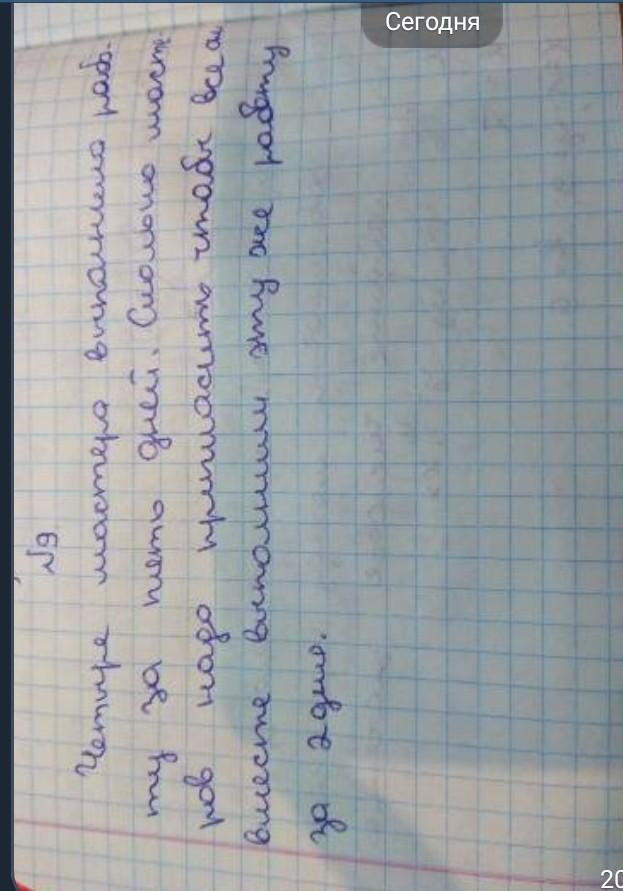 Сегодня
№9
Четыре мастера выполнило рабо-
ту за пять дней. Сколько масте-
ров надо пригласить чтобы все они
вместе выполнили эту же работу
за 2 дня.
20